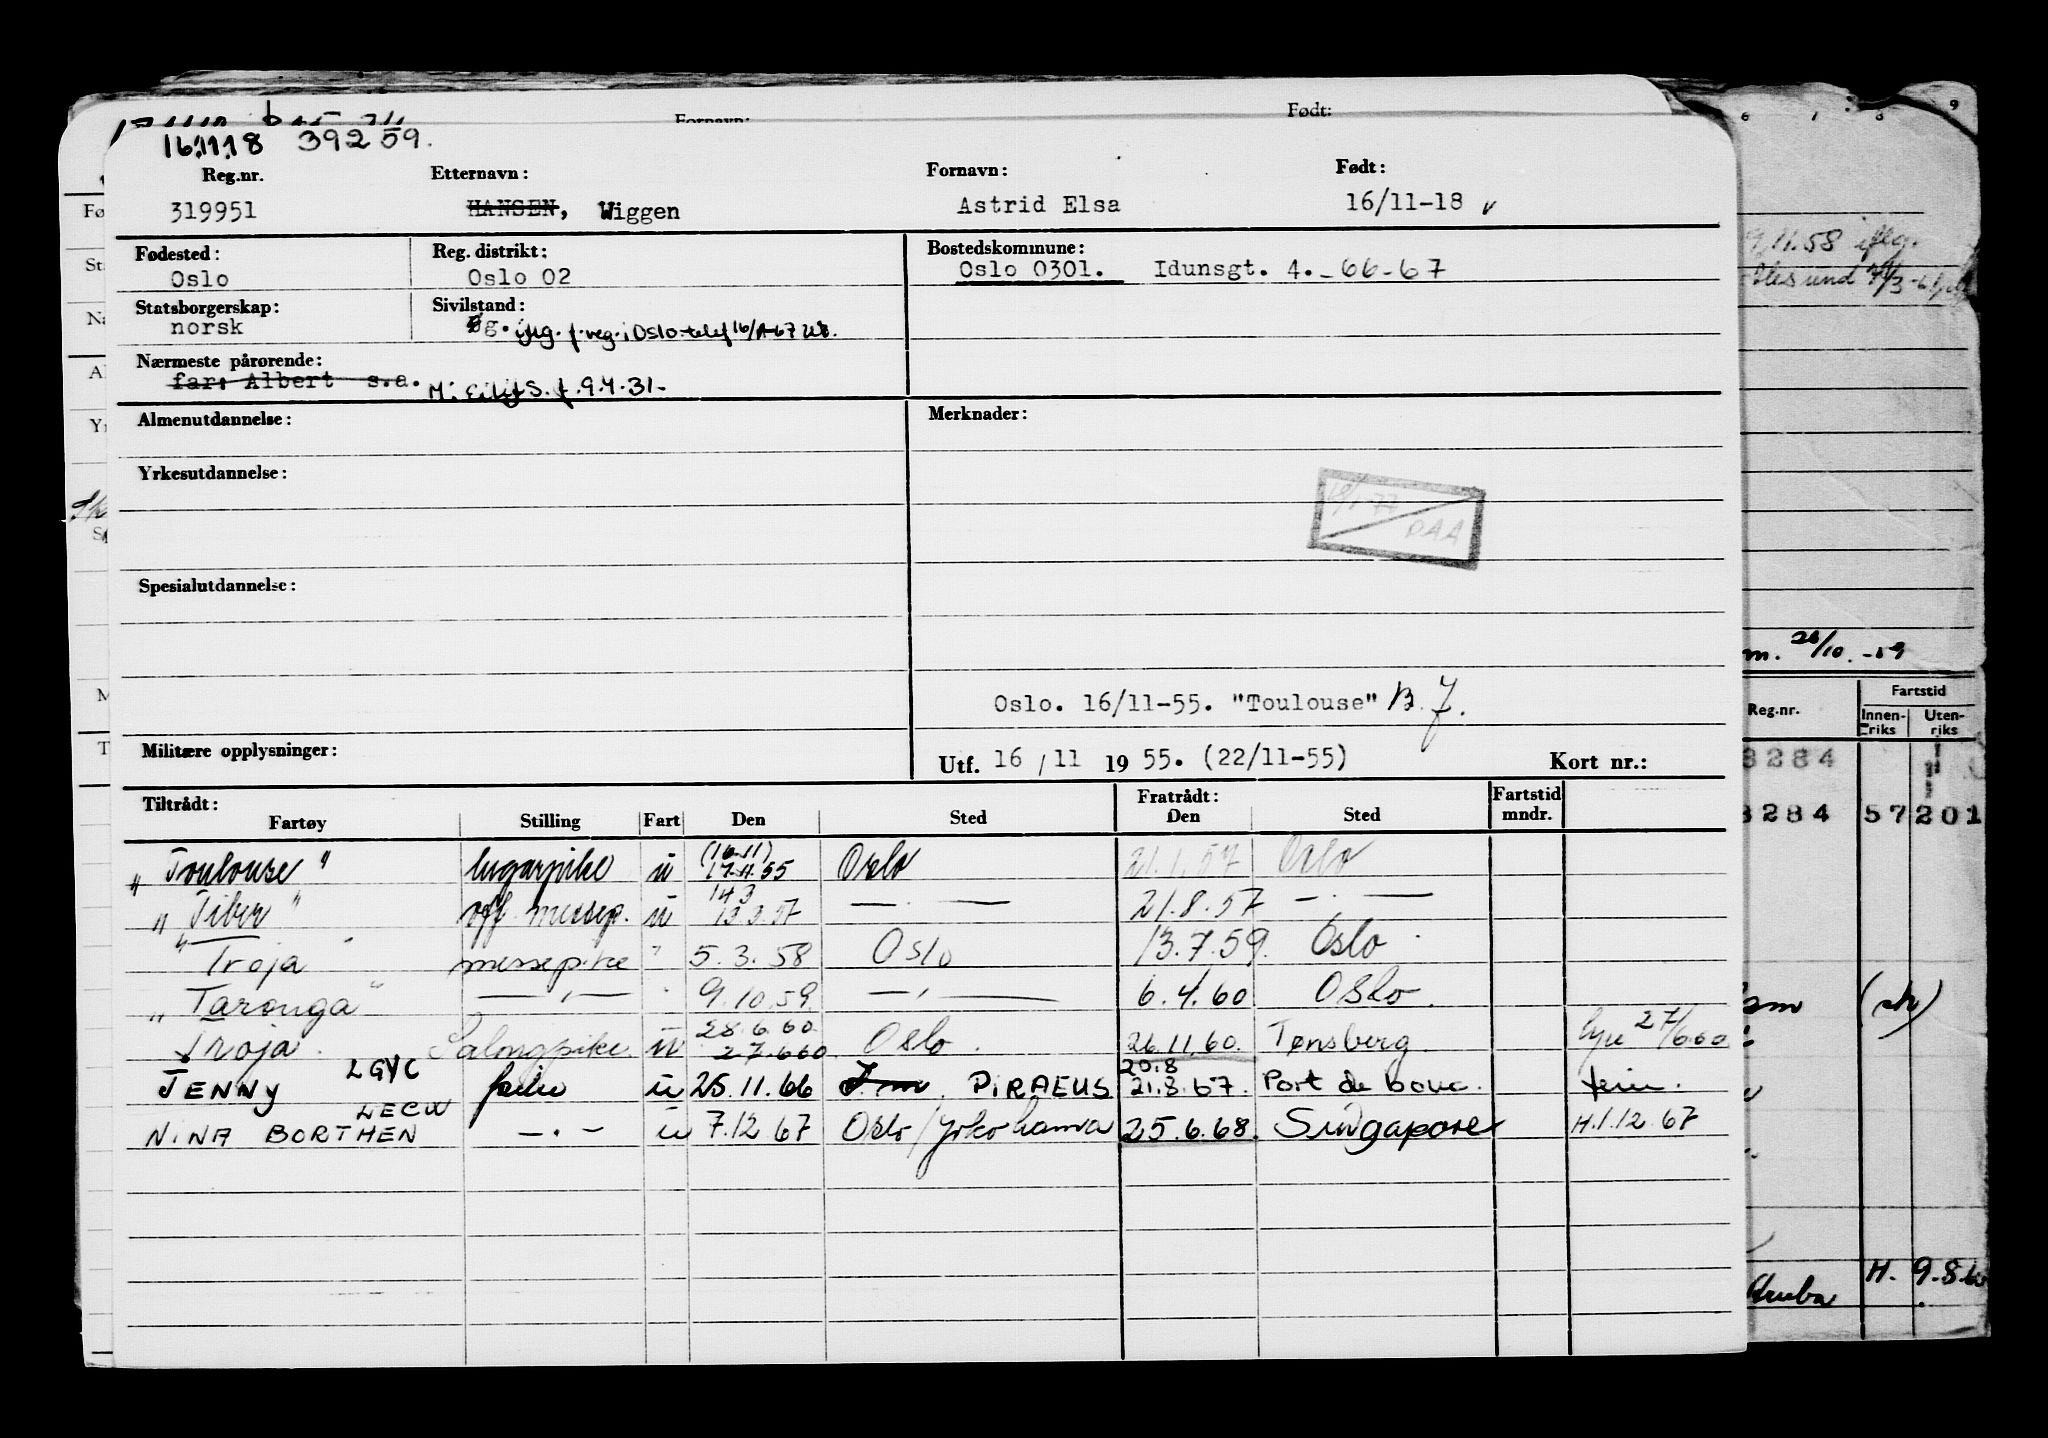 Fornavn: Født:
16.11.18 39259.
Reg.nr. Etternavn: Fornavn: Født:
319951 HANSEN, Wiggen Astrid Elsa 16/11-18 v
Fødested: Reg. distrikt: Bostedskommune:
Oslo Oslo 02 Oslo 0301. Idunsgt. 4. -66-67
Statsborgerskap: Sivilstand:
norsk g. iflg. f.reg. i Oslo telef
Nærmeste pårørende:
far: Albert s.a. M: Eilif S. f. 9.4.31-
Almenutdannelse: Merknader:
Yrkesutdannelse:
-77
DAA
Spesialutdannelse:
Oslo. 16/11-55. "Toulouse" B.J.
Militære opplysninger: Utf. 16/11 1955. (22/11-55) Kort nr.:
Tiltrådt: Fratrådt: Fartstid
Fartøy Stilling Fart Den Sted Den Sted mndr.
(16.11)
"Toulouse" lugarpike u 17.11.55 Oslo 21.1.57 Oslo
14 3
"Tiber" off. messep. u 13.3.57 — . — 21.8.57 — . —
"Troja" messepike " 5.3.58 Oslo 13.7.59. Oslo
"Taronga" — " — " 9.10.59 — " — 6.4.60 Oslo.
28.6.60
Troja. Salongpike. u 27.6.60. Oslo. 26.11.60. Tønsberg 27/6.60
LGYC 20.8
JENNY u 25.11.66 PIRAEUS 21.8.67. Port de bouc.
LECW
NINA BORTHEN — . — u 7.12 67 Oslo/Yokohama 25.6.68. Singapore H.1.12.67
6 7 8 9
9.11.58 iflg.
m. 26/10.-59
Reg.nr. Fartstid
Innenriks Utenriks
8284
8284 57 201
(sk)
Aruba H. 9.8.6